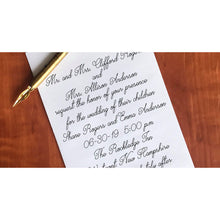 Mr. and Mrs. Clifford Rogers
and
Mrs. Allison Anderson
request the honor of your presence
for the wedding of their children
Shane Rogers and Emma Anderson
06-30-19 5:00 pm
The Rockledge Inn
New Hampshire
after